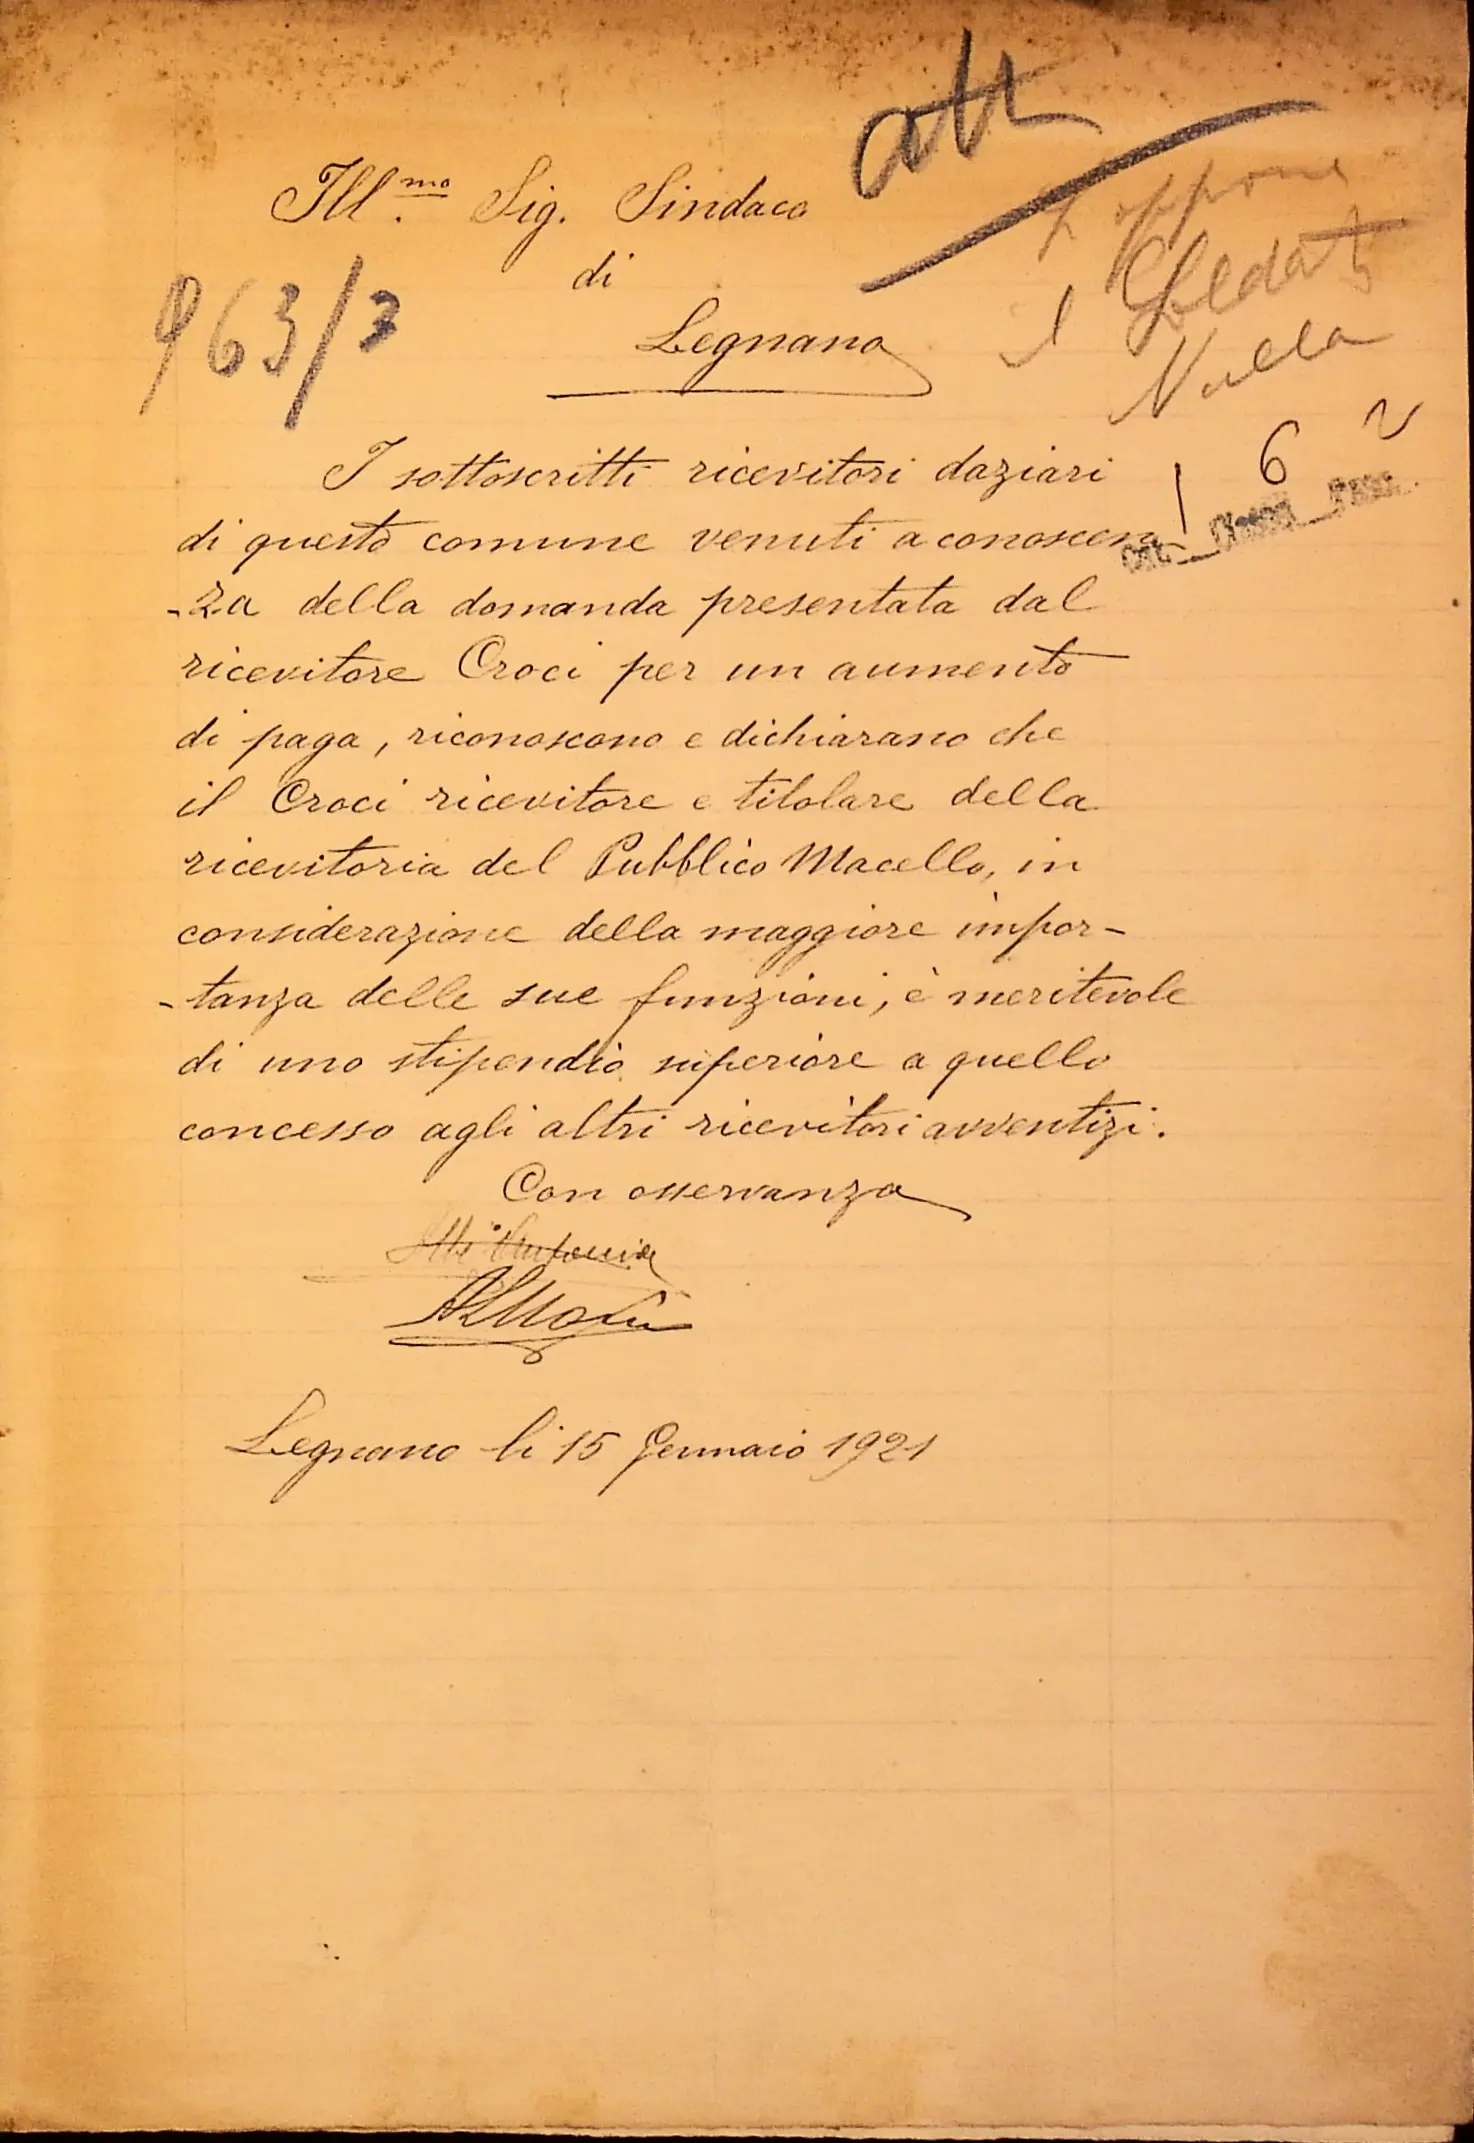 att
Ill.mo Sig. Sindaco
di
Legnano
963/3
oppone
il
Nulla
1 6 2
Cat. Classe Fasc.
I sottoscritti ricevitori daziari
di questo comune venuti a conoscen
-za della domanda presentata dal
ricevitore Croci per un aumento
di paga, riconoscono e dichiarano che
il Croci ricevitore e titolare della
ricevitoria del Pubblico Macello, in
considerazione della maggiore impor-
-tanza delle sue funzioni, è meritevole
di uno stipendio superiore a quello
concesso agli altri ricevitori avventizi.
Con osservanza
Legnano li 15 Gennaio 1921